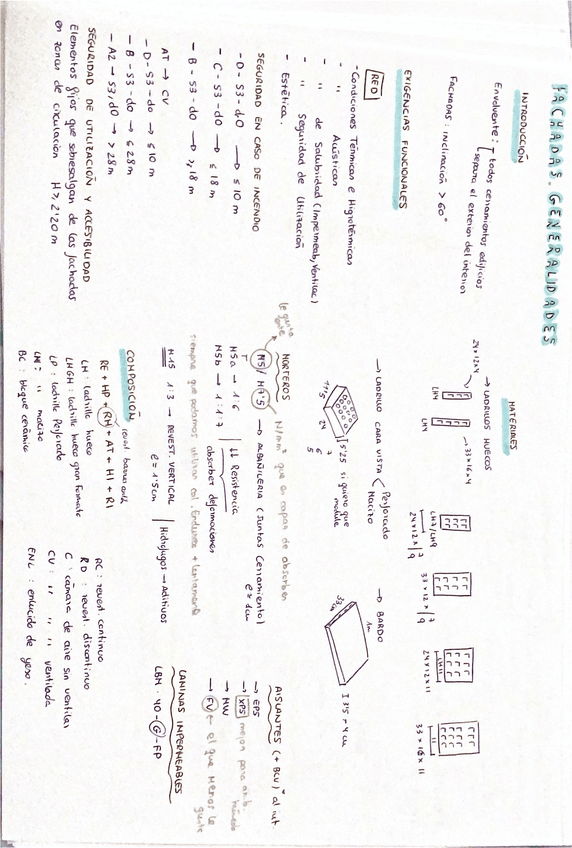 FACHADAS. GENERALIDADES
INTRODUCCIÓN
Envolvente: todos cerramientos edificios
separa el exterior del interior
FACHADAS: inclinación > 60°
EXIGENCIAS FUNCIONALES
RED
- Condiciones Térmicas e Higrotérmicas
- " Acústicas
- " de Salubridad (Impermeab, Ventilac)
- " Seguridad de Utilización
- Estética.
SEGURIDAD EN CASO DE INCENDIO
- D - S3 - d0 → ≤ 10 m
- C - S3 - d0 → ≤ 18 m
- B - S3 - d0 → ≥ 18 m
AT → CV
- D - S3 - d0 → ≤ 10 m
- B - S3 - d0 → ≤ 28 m
- A2 - S3, d0 → > 28 m
SEGURIDAD DE UTILIZACIÓN Y ACCESIBILIDAD
Elementos fijos que sobresalgan de las fachadas
en zonas de circulación H ≥ 2'20 m
MATERIALES
→ LADRILLOS HUECOS
24x12x4
LH4
LH4
33x16x4
LH7/LH9
24x12x 7
9
33x12x 7
9
24x12x11
33x16x11
→ LADRILLO CARA VISTA
Perforado
Macizo
11'5
24
5'25 si quiero que
module
7
6
5
→ BARDO
1m
3'5 - 4 cm
MORTEROS
le gusta
N/mm² que es capaz de absorber
M5 / M7'5 → ALBAÑILERIA (Juntas Cerramiento)
e ≈ 1cm
M5a → 1:6
M5b → 1:1:7
↓↓ Resistencia
absorber deformaciones
siempre que podamos utilizar cal. Endurece + lentamente
M-15 1:3 → REVEST. VERTICAL
e = 1'5cm
Hidrofugos → Aditivos
AISLANTES
→ EPS
→ XPS mejor para amb. húmedo
→ MW
→ FV ← el que menos le gusta
LAMINAS IMPERMEABLES
LBM - 40 - G - FP
COMPOSICIÓN
RE + HP + RH + AT + HI + RI
LH: ladrillo hueco
LHGH: ladrillo hueco gran formato
LP: ladrillo Perforado
LM: " macizo
BC: bloque cerámico
RC: revest. continuo
RD: revest. discontinuo
C: cámara de aire sin ventilar
CV: " " " ventilada
ENL: enlucido de yeso.